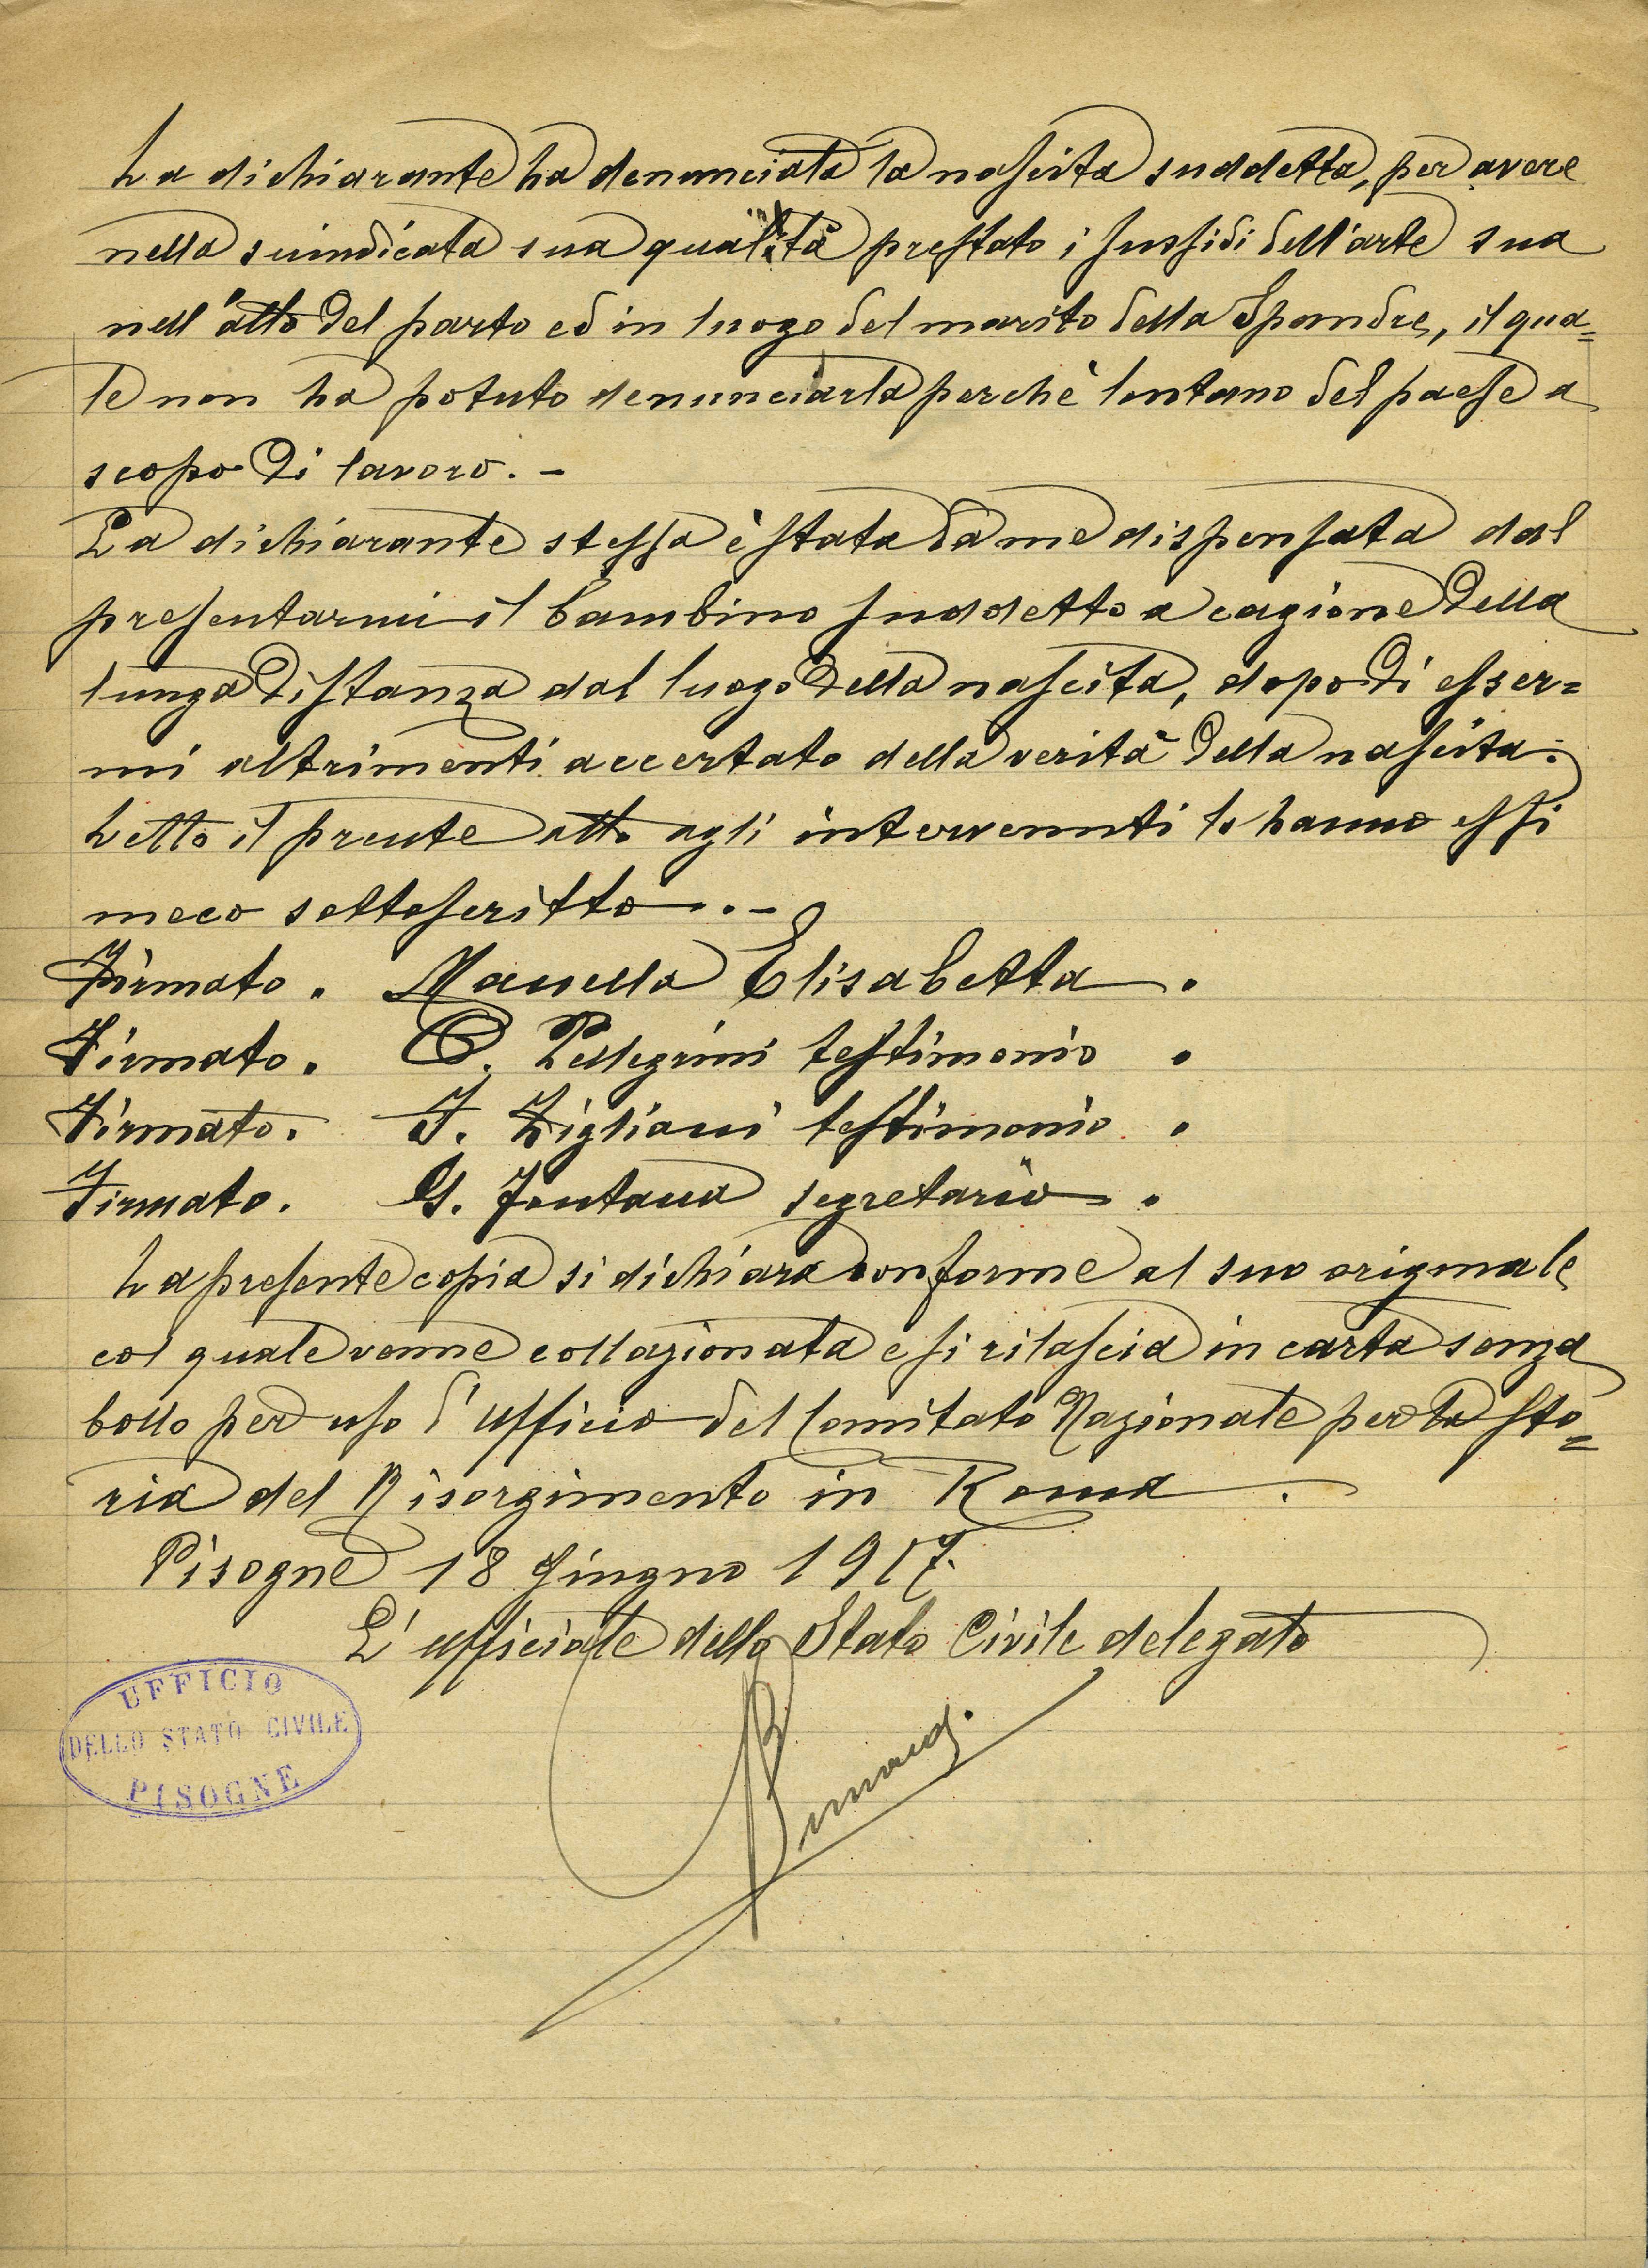 La dichiarante ha denunciato la nascita suddetta, per avere
nella suindicata sua qualità prestato i sussidi dell'arte sua
nell'atto del parto ed in luogo del marito della Spandre, il qua=
le non ha potuto denunciarla perchè lontano del paese a
scopo di lavoro. -
La dichiarante stessa è stata da me dispensata dal
presentarmi il bambino suddetto a cagione della
lunga distanza dal luogo della nascita, dopo di esser=
mi altrimenti accertato della verità della nascita.
Letto il prente atto agli intervenuti lo hanno essi
meco sottoscritto. -
Firmato. Manella Elisabetta.
Firmato. C. Pellegrini testimonio.
Firmato. F. Zigliani testimonio.
Firmato. G. Fontana segretario.
La presente copia si dichiara conforme al suo originale
col quale venne collazionata e si rilascia in carta senza
bollo per uso d'ufficio del Comitato Nazionale per la sto=
ria del Risorgimento in Roma.
Pisogne 18 Giugno 1917.
L'ufficiale dello Stato Civile delegato
UFFICIO
DELLO STATO CIVILE
PISOGNE